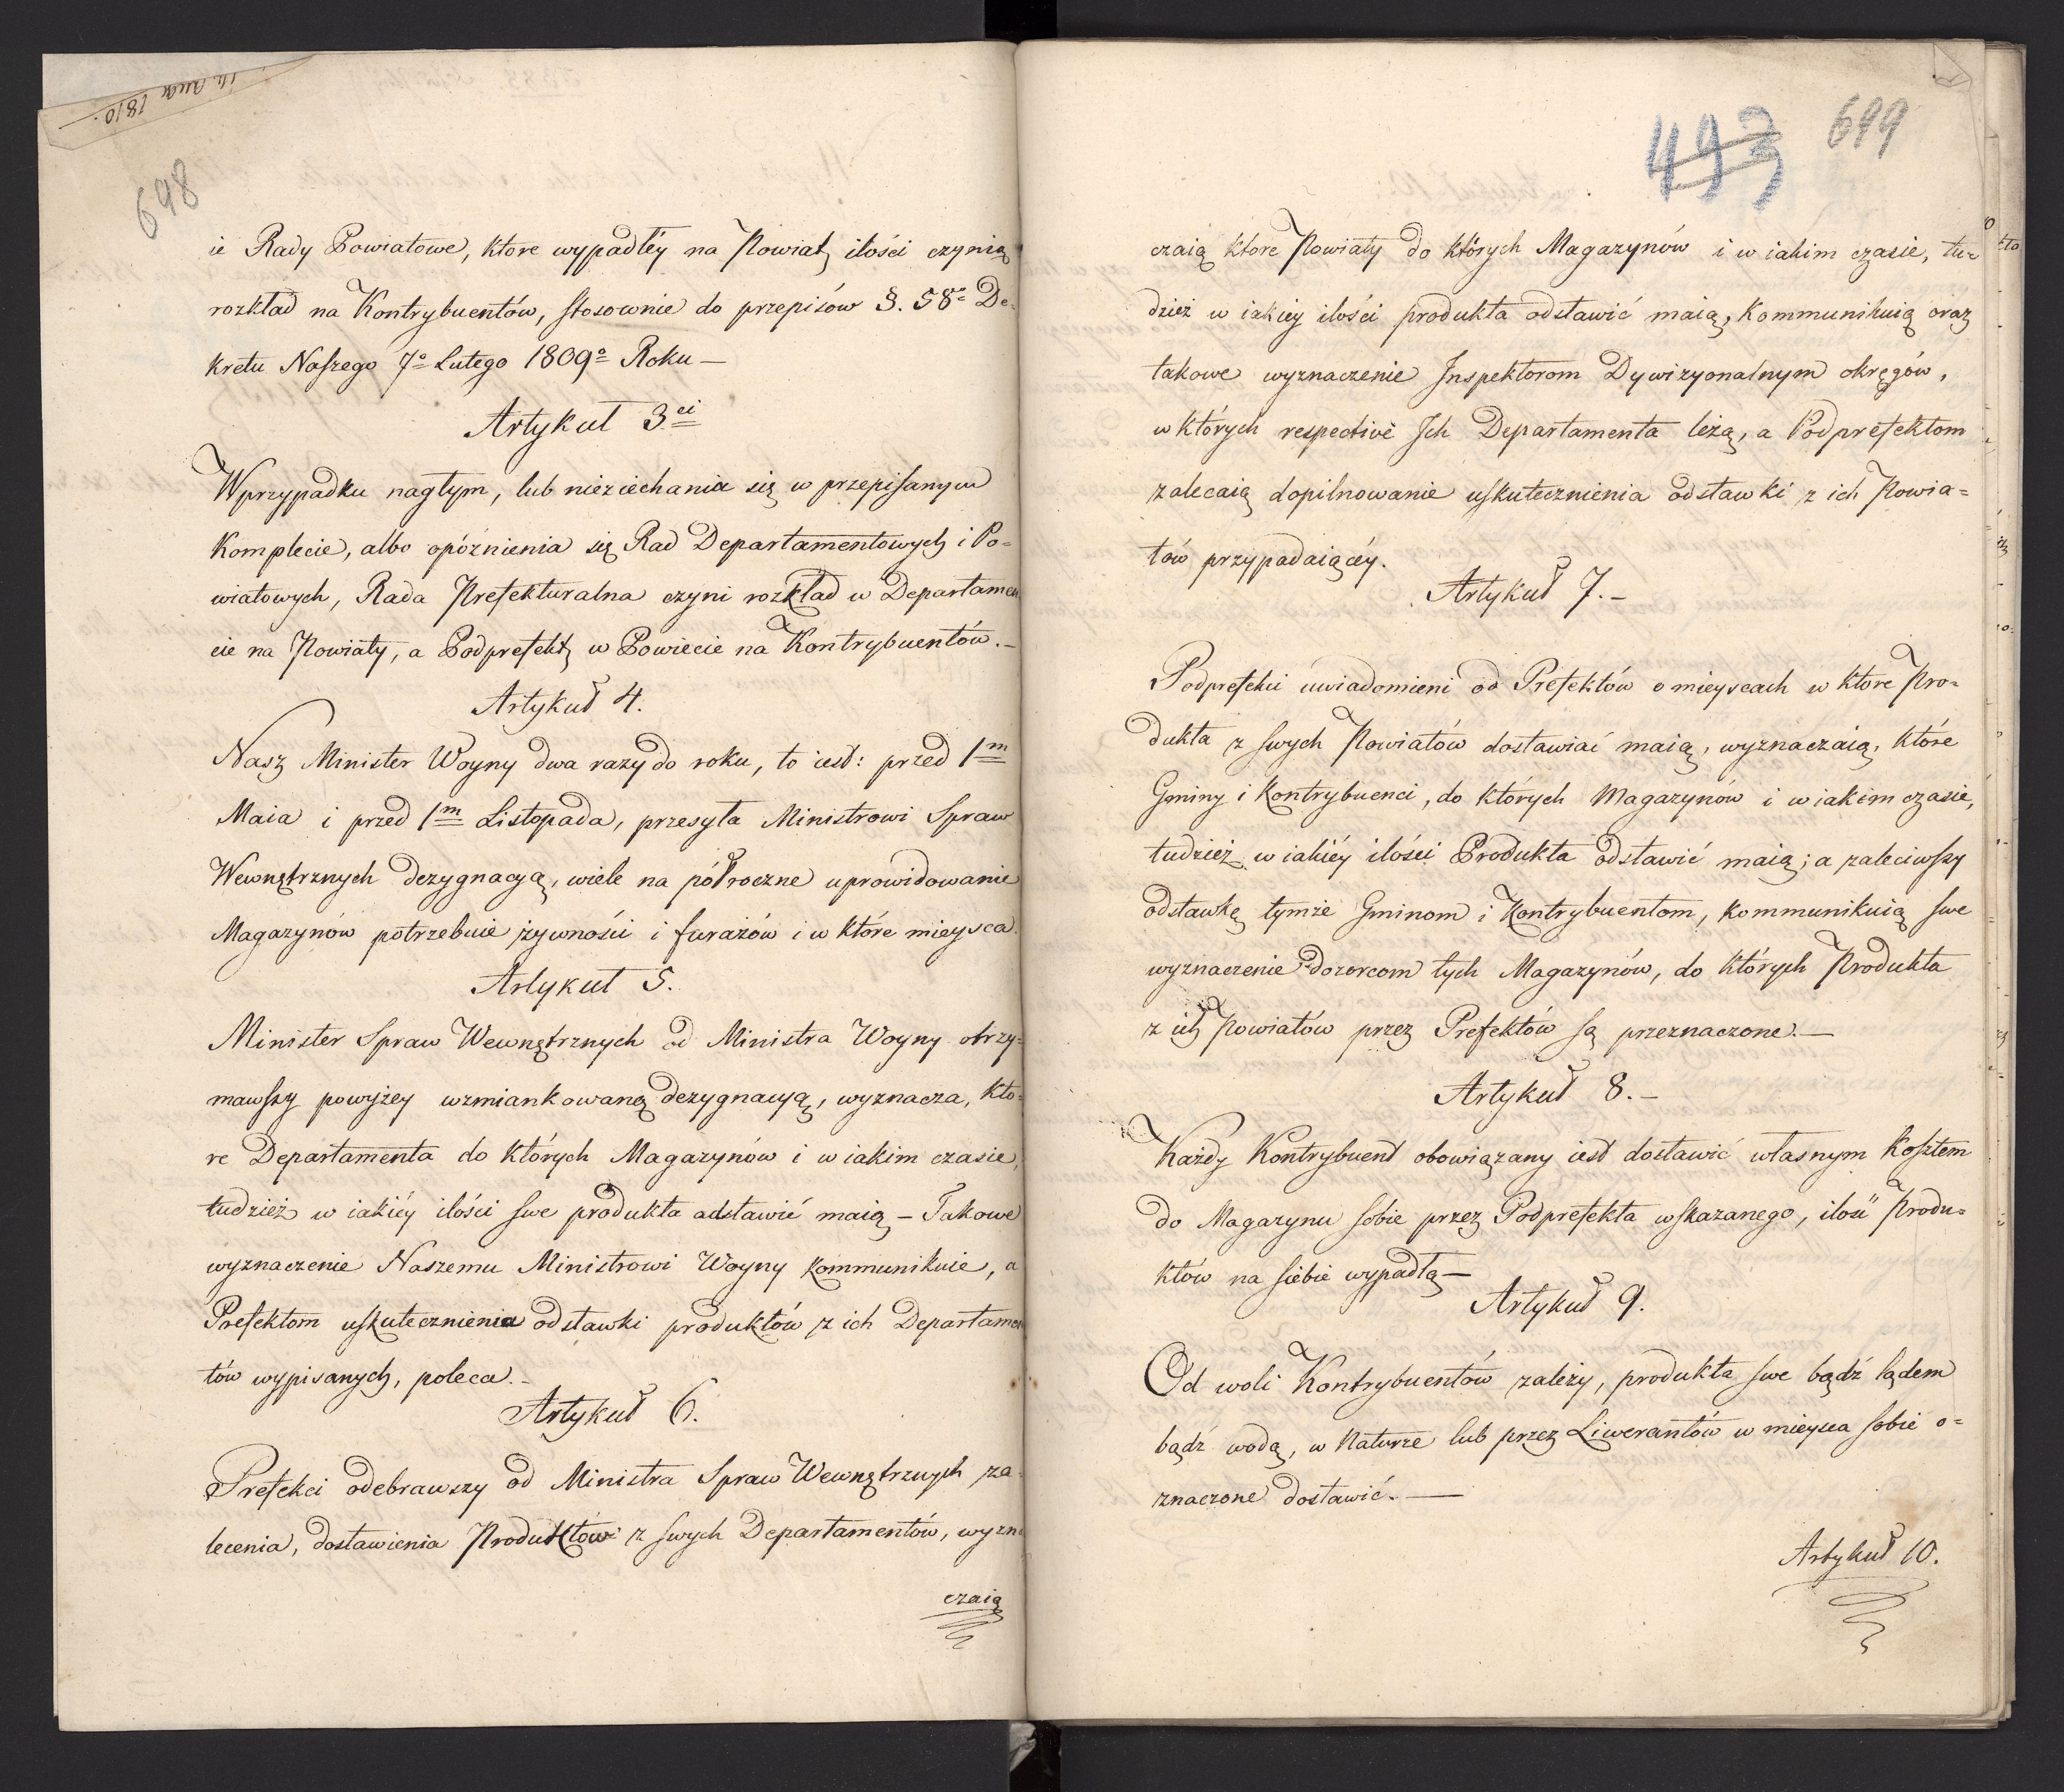 14. aug 1810.
698
ie Rady Powiatowe, ktore wypadłéy na Powiat ilości czynią
rozkład na Kontrybuentów, stosownie do przepisów §. 58º De-
kretu Naszego 7º Lutego 1809º Roku —
Artykuł 3ci
W przypadku nagłym, lub nieziechania się w przepisanym
Komplecie, albo opóznienia się Rad Departamentowych i Po=
wiatowych, Rada Prefekturalna czyni rozkład w Departamen
cie na Powiaty, a Podprefekt w Powiecie na Kontrybuentów. –
Artykuł 4.
Nasz Minister Woyny dwa razy do roku, to iest: przed 1m
Maia i przed 1m Listopada, przesyła Ministrowi Spraw
Wewnętrznych dezygnacyą, wiele na półroczne uprowidowanie
Magazynów potrzebuie żywności i furażów i w które mieysca.
Artykuł 5.
Minister Spraw Wewnętrznych od Ministra Woyny otrzy=
mawszy powyżey wzmiankowaną dezygnacyą, wyznacza, kto=
re Departamenta do których Magazynów i w iakim czasie,
tudzież w iakiéy ilości swe produkta odstawić maią – Takowe
wyznaczenie Naszemu Ministrowi Woyny kommunikuie, a
Prefektom uskutecznienia odstawki produktów z ich Departamen
tów wypisanych, poleca. –
Artykuł 6.
Prefekci odebrawszy od Ministra Spraw Wewnętrznych za=
lecenia, dostawienia Produktów z swych Departamentów, wyzna
czaią
493 699
czaią ktore Powiaty do których Magazynów i w iakim czasie, tu=
dzież w iakiey ilości produkta odstawić maią, Kommunikuią oraz
takowe wyznaczenie Inspektorom Dywizyonalnym okręgów,
w których respective Ich Departamenta leżą, a Podprefektom
zalecaią dopilnowanie uskutecznienia odstawki z ich Powia=
tów przypadaiącéy.
Artykuł 7. –
Podprefekci uwiadomieni od Prefektów o mieyscach w które Pro=
dukta z swych Powiatów dostawiać maią, wyznaczaią, które
Gminy i Kontrybuenci, do których Magazynów i w iakim czasie,
tudzież w iakiéy ilości Produkta odstawić maią; a zaleciwszy
odstawkę tymże Gminom i Kontrybuentom, kommunikuią swe
wyznaczenie dozorcom tych Magazynów, do których Produkta
z ich Powiatów przez Prefektów są przeznaczone. —
Artykuł 8. –
Każdy Kontrybuent obowiązany iest dostawić własnym Kosztem
do Magazynu sobie przez Podprefekta wskazanego, ilość Produ=
któw na siebie wypadłą —
Artykuł 9.
Od woli Kontrybuentów zależy, produkta swe bądź lądem
bądź wodą, w Naturze lub przez Liwerantów w mieysca sobie o=
znaczone dostawić. —
Artykuł 10.